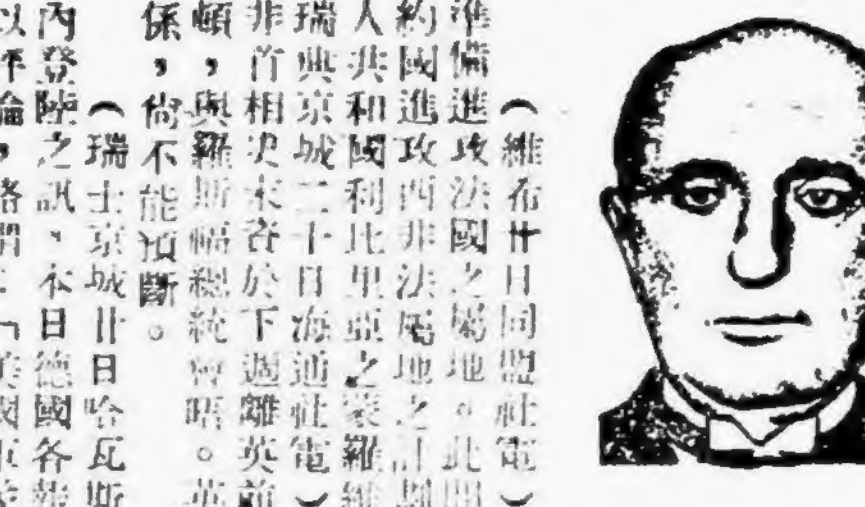 （維希廿日同盟社電）
準備進攻法國之屬地。此間
約國進攻西非法屬地之計劃
人共和國利比里亞之蒙羅維
瑞典京城二十日海通社電）
非首相史末資於下週離英前
頓，與羅斯福總統會晤。英
係，尙不能預斷。
（瑞士京城廿日哈瓦斯
內登陸之訊，本日德國各報
以評論，略謂：「英國軍